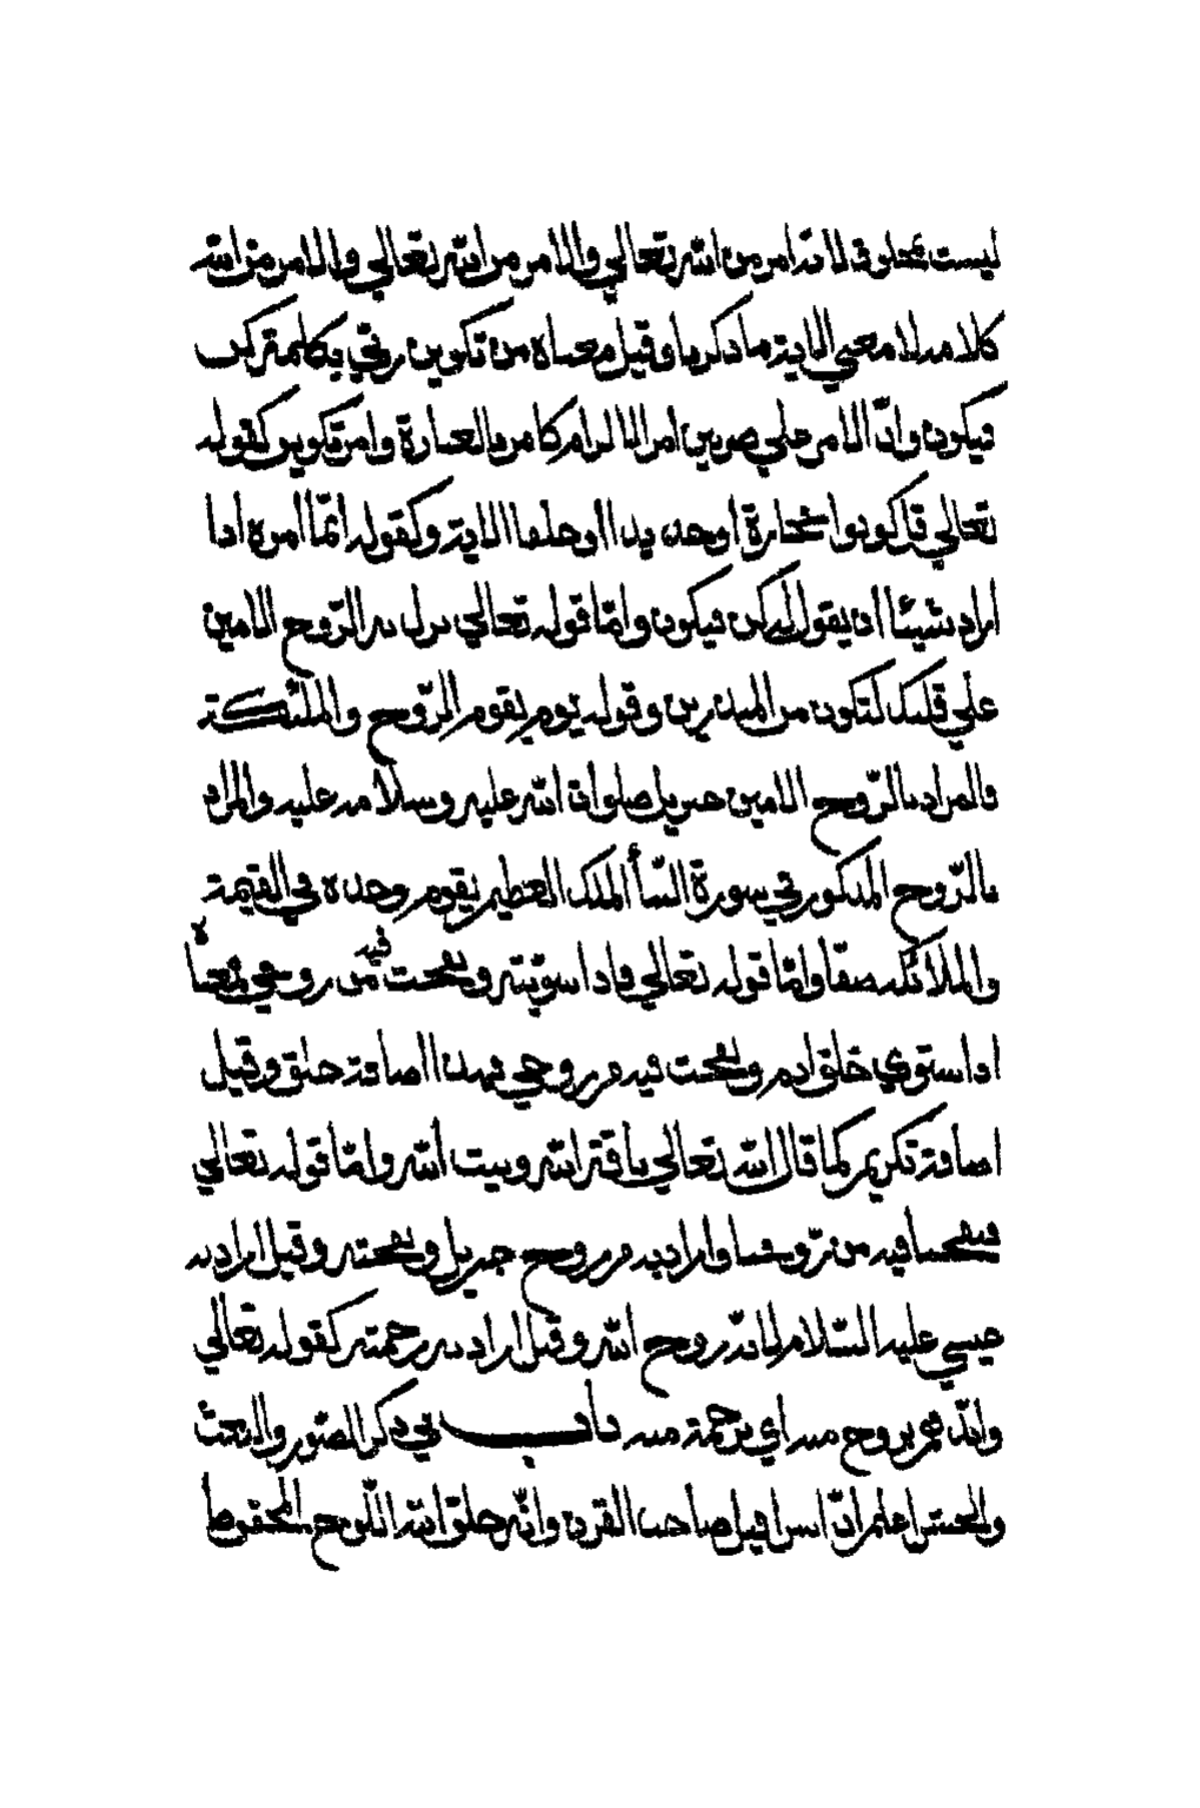 ليست بمخلوقة لانه امر من الله تعالي والامر من الله تعالي والامر من الله
كلامه لا معني الاية ما ذكرنا وقيل معناه من تكوين ربي بكلمة كن
فيكون وانّ الامر علي ضربين امر الالزام كامره بالعبادة وامر تكوين كقوله
تعالي قل كونوا حجارة او حديدا او خلقا الاية وكقوله انّما امره اذا
اراد شيئا ان يقول له كن فيكون وامّا قوله تعالي نزل به الرّوح الامين
علي قلبك لتكون من المنذرين وقوله يوم يقوم الرّوح والملئكة
فالمراد بالرّوح الامين جبريل صلوات الله عليه وسلامه عليه والمراد
بالرّوح المذكور في سورة النّبأ الملك العظيم يقوم وحده في القيمة
والملائكة صفّا وامّا قوله تعالي فاذا سوّيته ونفخت فيه من روحي فمعناه
اذا استوي خلق ادم ونفخت فيه من روحي فهذا اضافة خلق وقيل
اضافة تكريم كما قال الله تعالي ناقة الله وبيت الله وامّا قوله تعالي
فنفخنا فيه من رّوحنا واراد به من روح جبريل ونفخته وقيل اراد به
عيسي عليه السّلام لانّه روح الله وقيل اراد به رحمته كقوله تعالي
وايّدهم بروح منه اي برحمة منه باب في ذكر الصّور والبعث
والحشر اعلم انّ اسرافيل صاحب القرن وانّه خلق الله اللّوح المحفوظ